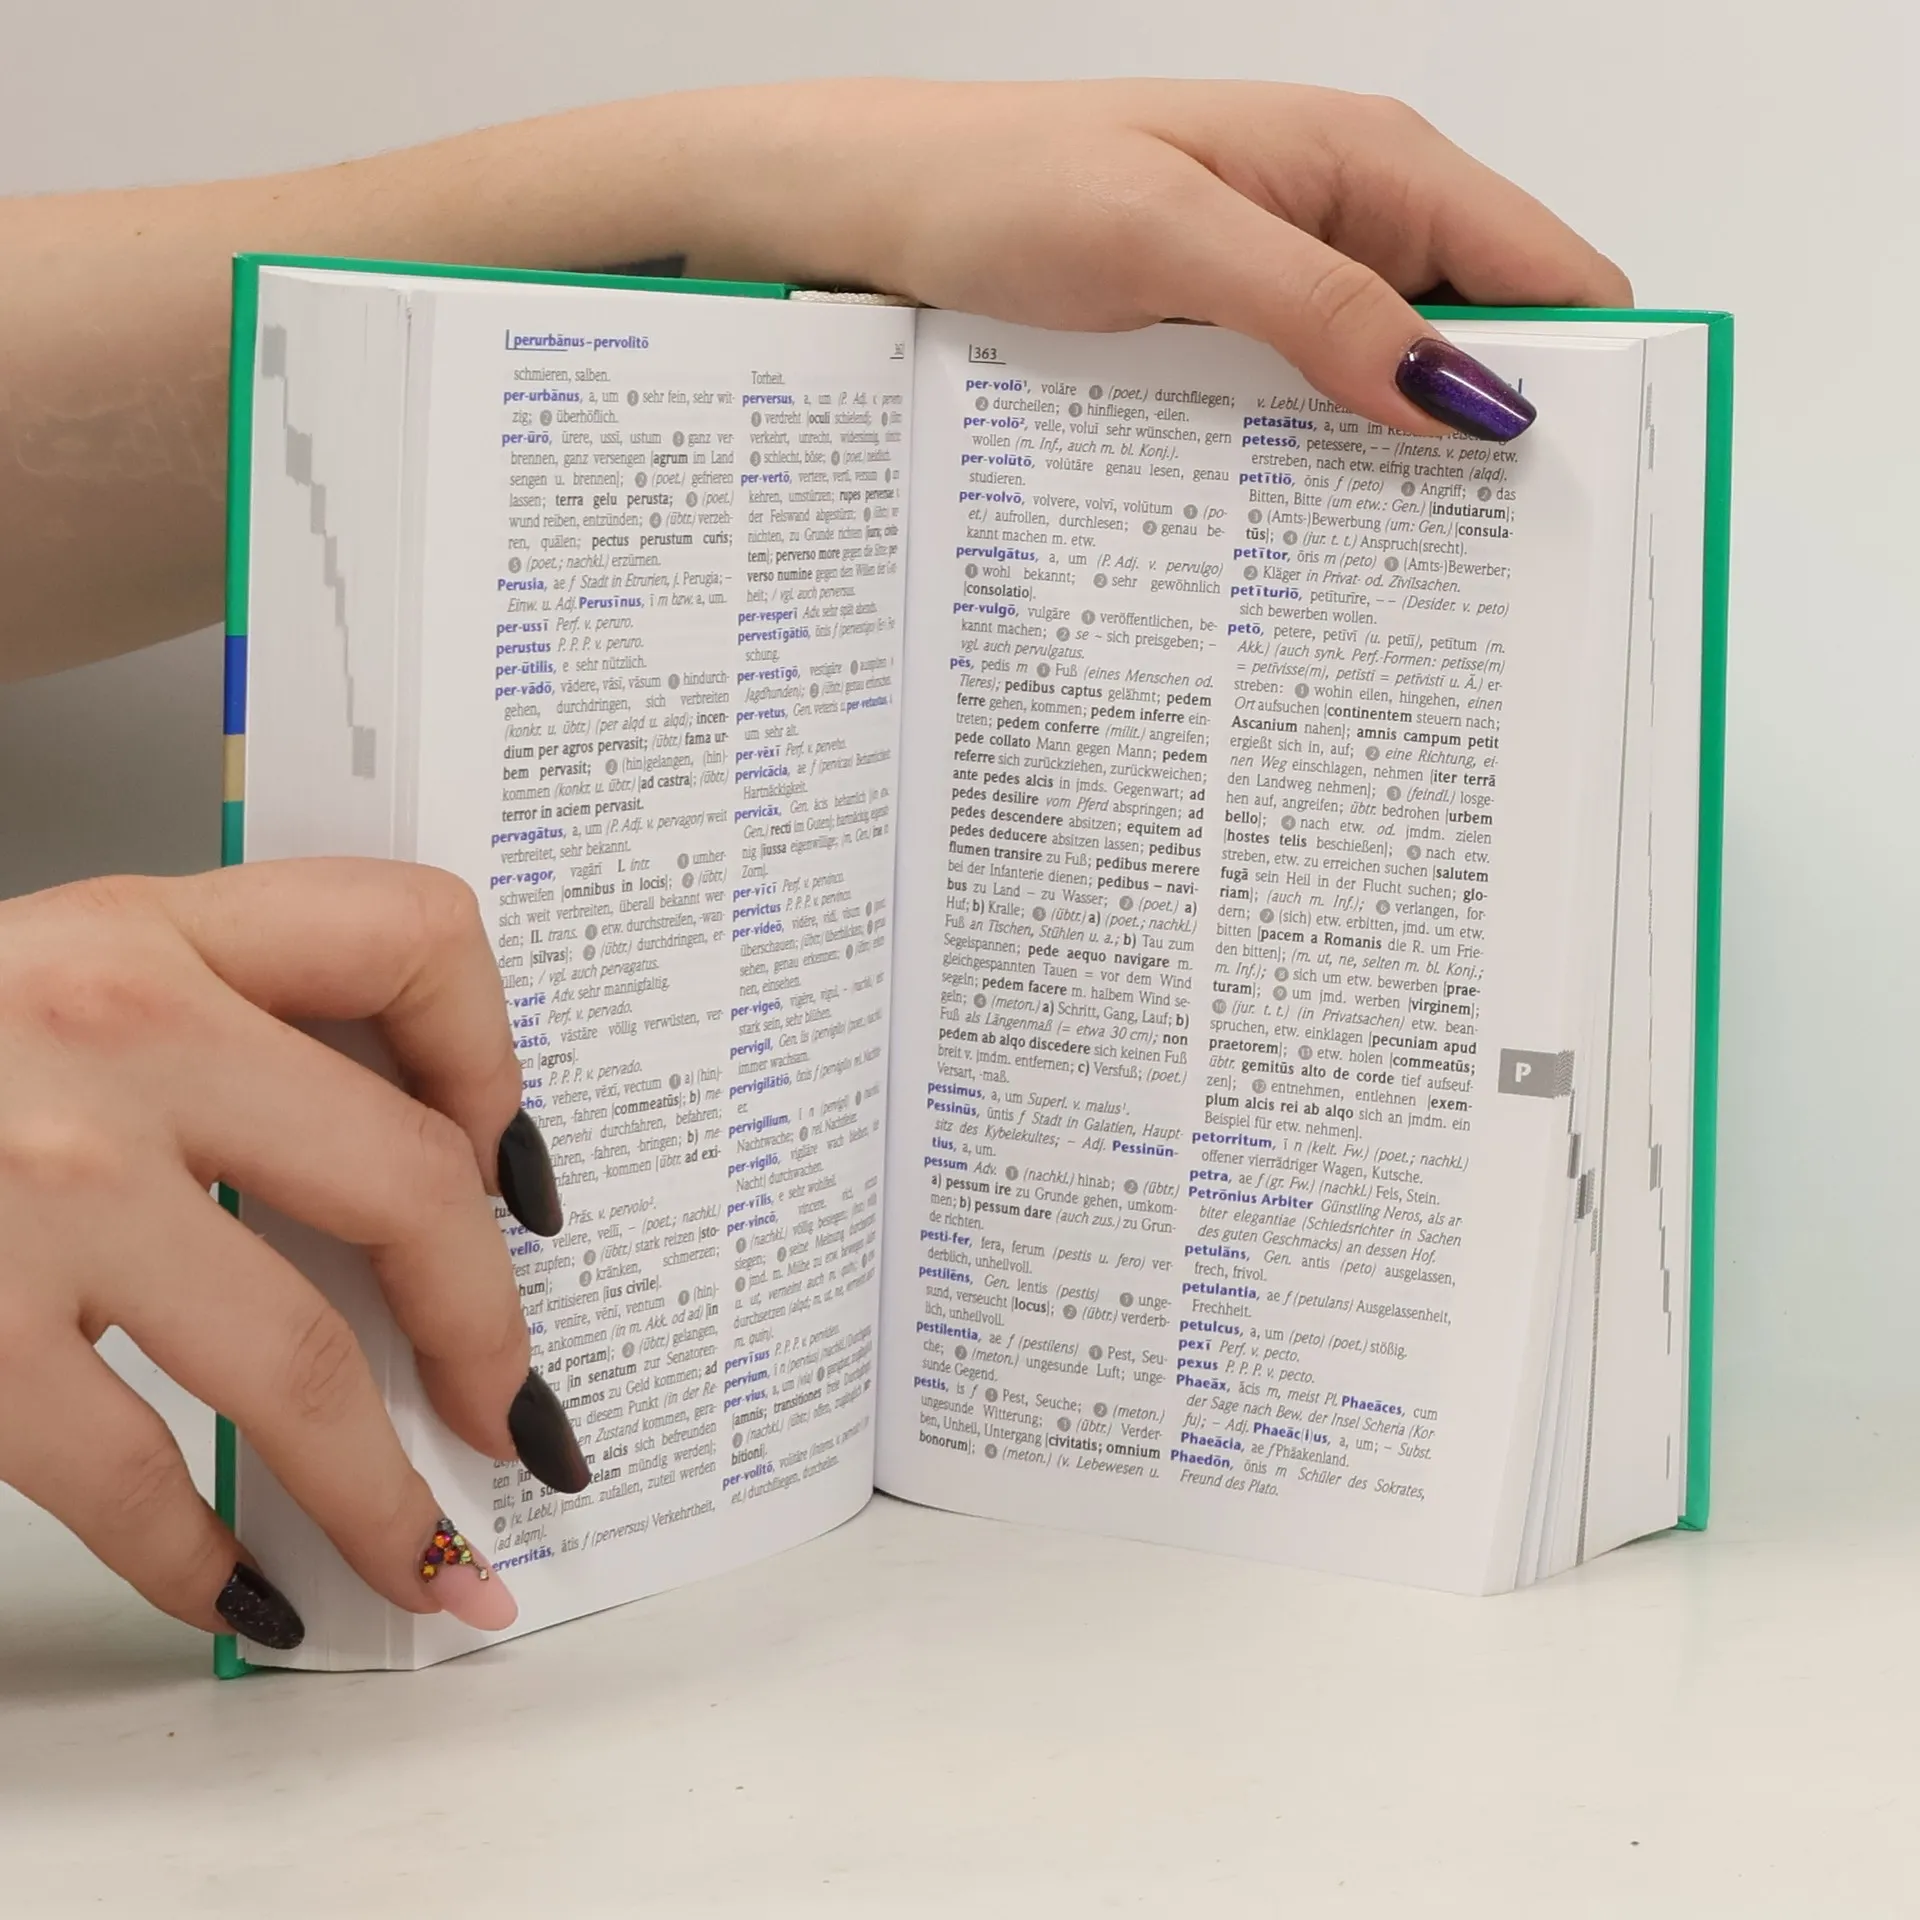 perurbānus–pervolitō
schmieren, salben.
per-urbānus, a, um ❶ sehr fein, sehr wit-
zig; ❷ überhöflich.
per-ūrō, ūrere, ussī, ustum ❶ ganz ver-
brennen, ganz versengen [agrum im Land
sengen u. brennen]; ❷ (poet.) gefrieren
lassen; terra gelu perusta; ❸ (poet.)
wund reiben, entzünden; ❹ (übtr.) verzeh-
ren, quälen; pectus perustum curis;
❺ (poet.; nachkl.) erzürnen.
Perusia, ae f Stadt in Etrurien, j. Perugia; –
Einw. u. Adj. Perusīnus, ī m bzw. a, um.
per-ussī Perf. v. peruro.
perustus P. P. P. v. peruro.
per-ūtilis, e sehr nützlich.
per-vādō, vādere, vāsī, vāsum ❶ hindurch-
gehen, durchdringen, sich verbreiten
(konkr. u. übtr.) (per alqd u. alqd); incen-
dium per agros pervasit; (übtr.) fama ur-
bem pervasit; ❷ (hin)gelangen, (hin)-
kommen (konkr. u. übtr.) [ad castra]; (übtr.)
terror in aciem pervasit.
pervagātus, a, um (P. Adj. v. pervagor) weit
verbreitet, sehr bekannt.
per-vagor, vagārī I. intr. ❶ umher-
schweifen [omnibus in locis]; ❷ (übtr.)
sich weit verbreiten, überall bekannt wer-
den; II. trans. ❶ etw. durchstreifen, -wan-
dern [silvas]; ❷ (übtr.) durchdringen, er-
füllen; / vgl. auch pervagatus.
-variē Adv. sehr mannigfaltig.
-vāsī Perf. v. pervado.
vāstō, vāstāre völlig verwüsten, ver-
[agros].
sus P. P. P. v. pervado.
vehere, vēxī, vectum ❶ a) (hin)-
-fahren [commeatūs]; b) me-
pervehi durchfahren, befahren;
-fahren, -bringen; b) me-
-kommen [übtr. ad exi-
Präs. v. pervolo².
vellō, vellere, vellī, – (poet.; nachkl.)
zupfen; ❷ (übtr.) stark reizen [sto-
❸ kränken, schmerzen;
kritisieren [ius civile].
venīre, vēnī, ventum ❶ (hin)-
ankommen (in m. Akk. od ad) [in
ad portam]; ❷ (übtr.) gelangen,
[in senatum zur Senatoren-
zu Geld kommen; ad
zu diesem Punkt (in der Re-
Zustand kommen, gera-
alcis sich befreunden
mündig werden];
(v. Lebl.) jmdm. zufallen, zuteil werden
(ad alqm).
ātis f (perversus) Verkehrtheit,
Torheit.
perversus, a, um (P. Adj. v.
❶ verdreht [oculi schielend];
verkehrt, unrecht, widersinnig,
❸ schlecht, böse; ❹ (poet.) neidisch.
per-vertō, vertere, vertī, versum
kehren, umstürzen;
der Felswand abgestürzt;
nichten, zu Grunde richten
perverso more gegen die Sitte;
verso numine gegen den Willen der
heit; / vgl. auch perversus.
per-vesperī Adv. sehr spät abends.
pervestīgātiō, ōnis f (pervestigo)
schung.
per-vestīgō, vestīgāre
Jagdhunden); ❷ (übtr.) genau
per-vetus, Gen. veteris u. per-vetustus,
um sehr alt.
per-vēxī Perf. v. perveho.
pervicācia, ae f (pervicax)
Hartnäckigkeit.
pervicāx, Gen. ācis beharrlich
Gen./ recti im Guten]; hartnäckig,
nig [iussa eigenwillige;
Zorn].
per-vīcī Perf. v. pervinco.
pervictus P. P. P. v. pervinco.
per-videō, vidēre, vīdī, vīsum
überschauen; (übtr.) überblicken;
sehen, genau erkennen;
nen, einsehen.
per-vigeō, vigēre, viguī, –
stark sein, sehr blühen.
pervigil, Gen. ilis (pervigilo)
immer wachsam.
pervigilātiō, ōnis f (pervigilo) rel.
pervigilium, ī n (pervigil)
Nachtwache; ❷ rel. Nachtfeier.
per-vigilō, vigilāre wach bleiben,
Nacht) durchwachen.
per-vīlis, e sehr wohlfeil.
per-vincō, vincere,
❶ (nachkl.) völlig besiegen;
siegen; ❷ seine Meinung
❸ jmd. m. Mühe zu etw. bewegen
u. ut, verneint auch
durchsetzen (alqd; m. ut, ne,
m. quin).
pervīsus P. P. P. v. pervideo.
pervium, ī n (pervius)
per-vius, a, um (via)
[amnis; transitiones
❷ (nachkl.) (übtr.) offen, zugänglich
bitioni].
per-volitō, volitāre (Intens. v.
et.) durchfliegen, durcheilen.
363
per-volō¹, volāre ❶ (poet.) durchfliegen;
❷ durcheilen; ❸ hinfliegen, -eilen.
per-volō², velle, voluī sehr wünschen, gern
wollen (m. Inf., auch m. bl. Konj.).
per-volūtō, volūtāre genau lesen, genau
studieren.
per-volvō, volvere, volvī, volūtum ❶ (po-
et.) aufrollen, durchlesen; ❷ genau be-
kannt machen m. etw.
pervulgātus, a, um (P. Adj. v. pervulgo)
❶ wohl bekannt; ❷ sehr gewöhnlich
[consolatio].
per-vulgō, vulgāre ❶ veröffentlichen, be-
kannt machen; ❷ se ~ sich preisgeben; –
vgl. auch pervulgatus.
pēs, pedis m ❶ Fuß (eines Menschen od.
Tieres); pedibus captus gelähmt; pedem
ferre gehen, kommen; pedem inferre ein-
treten; pedem conferre (milit.) angreifen;
pede collato Mann gegen Mann; pedem
referre sich zurückziehen, zurückweichen;
ante pedes alcis in jmds. Gegenwart; ad
pedes desilire vom Pferd abspringen; ad
pedes descendere absitzen; equitem ad
pedes deducere absitzen lassen; pedibus
flumen transire zu Fuß; pedibus merere
bei der Infanterie dienen; pedibus – navi-
bus zu Land – zu Wasser; ❷ (poet.) a)
Huf; b) Kralle; ❸ (übtr.) a) (poet.; nachkl.)
Fuß an Tischen, Stühlen u. a.; b) Tau zum
Segelspannen; pede aequo navigare m.
gleichgespannten Tauen = vor dem Wind
segeln; pedem facere m. halbem Wind se-
geln; ❹ (meton.) a) Schritt, Gang, Lauf; b)
Fuß als Längenmaß (= etwa 30 cm); non
pedem ab alqo discedere sich keinen Fuß
breit v. jmdm. entfernen; c) Versfuß; (poet.)
Versart, -maß.
pessimus, a, um Superl. v. malus¹.
Pessinūs, ūntis f Stadt in Galatien, Haupt-
sitz des Kybelekultes; – Adj. Pessinūn-
tius, a, um.
pessum Adv. ❶ (nachkl.) hinab; ❷ (übtr.)
a) pessum ire zu Grunde gehen, umkom-
men; b) pessum dare (auch zus.) zu Grun-
de richten.
pesti-fer, fera, ferum (pestis u. fero) ver-
derblich, unheilvoll.
pestilēns, Gen. lentis (pestis) ❶ unge-
sund, verseucht [locus]; ❷ (übtr.) verderb-
lich, unheilvoll.
pestilentia, ae f (pestilens) ❶ Pest, Seu-
che; ❷ (meton.) ungesunde Luft; unge-
sunde Gegend.
pestis, is f ❶ Pest, Seuche; ❷ (meton.)
ungesunde Witterung; ❸ (übtr.) Verder-
ben, Unheil, Untergang [civitatis; omnium
bonorum]; ❹ (meton.) (v. Lebewesen u.
v. Lebl.)
petasātus, a, um im
petessō, petessere, – – (Intens. v. peto) etw.
erstreben, nach etw. eifrig trachten (alqd).
petītiō, ōnis f (peto) ❶ Angriff; ❷ das
Bitten, Bitte (um etw.: Gen.) [indutiarum];
❸ (Amts-)Bewerbung (um: Gen.) [consula-
tūs]; ❹ (jur. t. t.) Anspruch(srecht).
petītor, ōris m (peto) ❶ (Amts-)Bewerber;
❷ Kläger in Privat- od. Zivilsachen.
petīturiō, petīturīre, – – (Desider. v. peto)
sich bewerben wollen.
petō, petere, petīvī (u. petiī), petītum (m.
Akk.) (auch synk. Perf.-Formen: petīsse(m)
= petīvisse(m), petīstī = petīvistī u. Ä.) er-
streben: ❶ wohin eilen, hingehen, einen
Ort aufsuchen [continentem steuern nach;
Ascanium nahen]; amnis campum petit
ergießt sich in, auf; ❷ eine Richtung, ei-
nen Weg einschlagen, nehmen [iter terrā
den Landweg nehmen]; ❸ (feindl.) losge-
hen auf, angreifen; übtr. bedrohen [urbem
bello]; ❹ nach etw. od. jmdm. zielen
[hostes telis beschießen]; ❺ nach etw.
streben, etw. zu erreichen suchen [salutem
fugā sein Heil in der Flucht suchen; glo-
riam]; (auch m. Inf.); ❻ verlangen, for-
dern; ❼ (sich) etw. erbitten, jmd. um etw.
bitten [pacem a Romanis die R. um Frie-
den bitten]; (m. ut, ne, selten m. bl. Konj.;
m. Inf.); ❽ sich um etw. bewerben [prae-
turam]; ❾ um jmd. werben [virginem];
❿ (jur. t. t.) (in Privatsachen) etw. bean-
spruchen, etw. einklagen [pecuniam apud
praetorem]; ⓫ etw. holen [commeatūs;
übtr. gemitūs alto de corde tief aufseuf-
zen]; ⓬ entnehmen, entlehnen [exem-
plum alcis rei ab alqo sich an jmdm. ein
Beispiel für etw. nehmen].
petorritum, ī n (kelt. Fw.) (poet.; nachkl.)
offener vierrädriger Wagen, Kutsche.
petra, ae f (gr. Fw.) (nachkl.) Fels, Stein.
Petrōnius Arbiter Günstling Neros, als ar
biter elegantiae (Schiedsrichter in Sachen
des guten Geschmacks) an dessen Hof.
petulāns, Gen. antis (peto) ausgelassen,
frech, frivol.
petulantia, ae f (petulans) Ausgelassenheit,
Frechheit.
petulcus, a, um (peto) (poet.) stößig.
pexī Perf. v. pecto.
pexus P. P. P. v. pecto.
Phaeāx, ācis m, meist Pl. Phaeāces, cum
der Sage nach Bew. der Insel Scheria (Kor
fu); – Adj. Phaeāc(i)us, a, um; – Subst.
Phaeācia, ae f Phäakenland.
Phaedōn, ōnis m Schüler des Sokrates,
Freund des Plato.
P